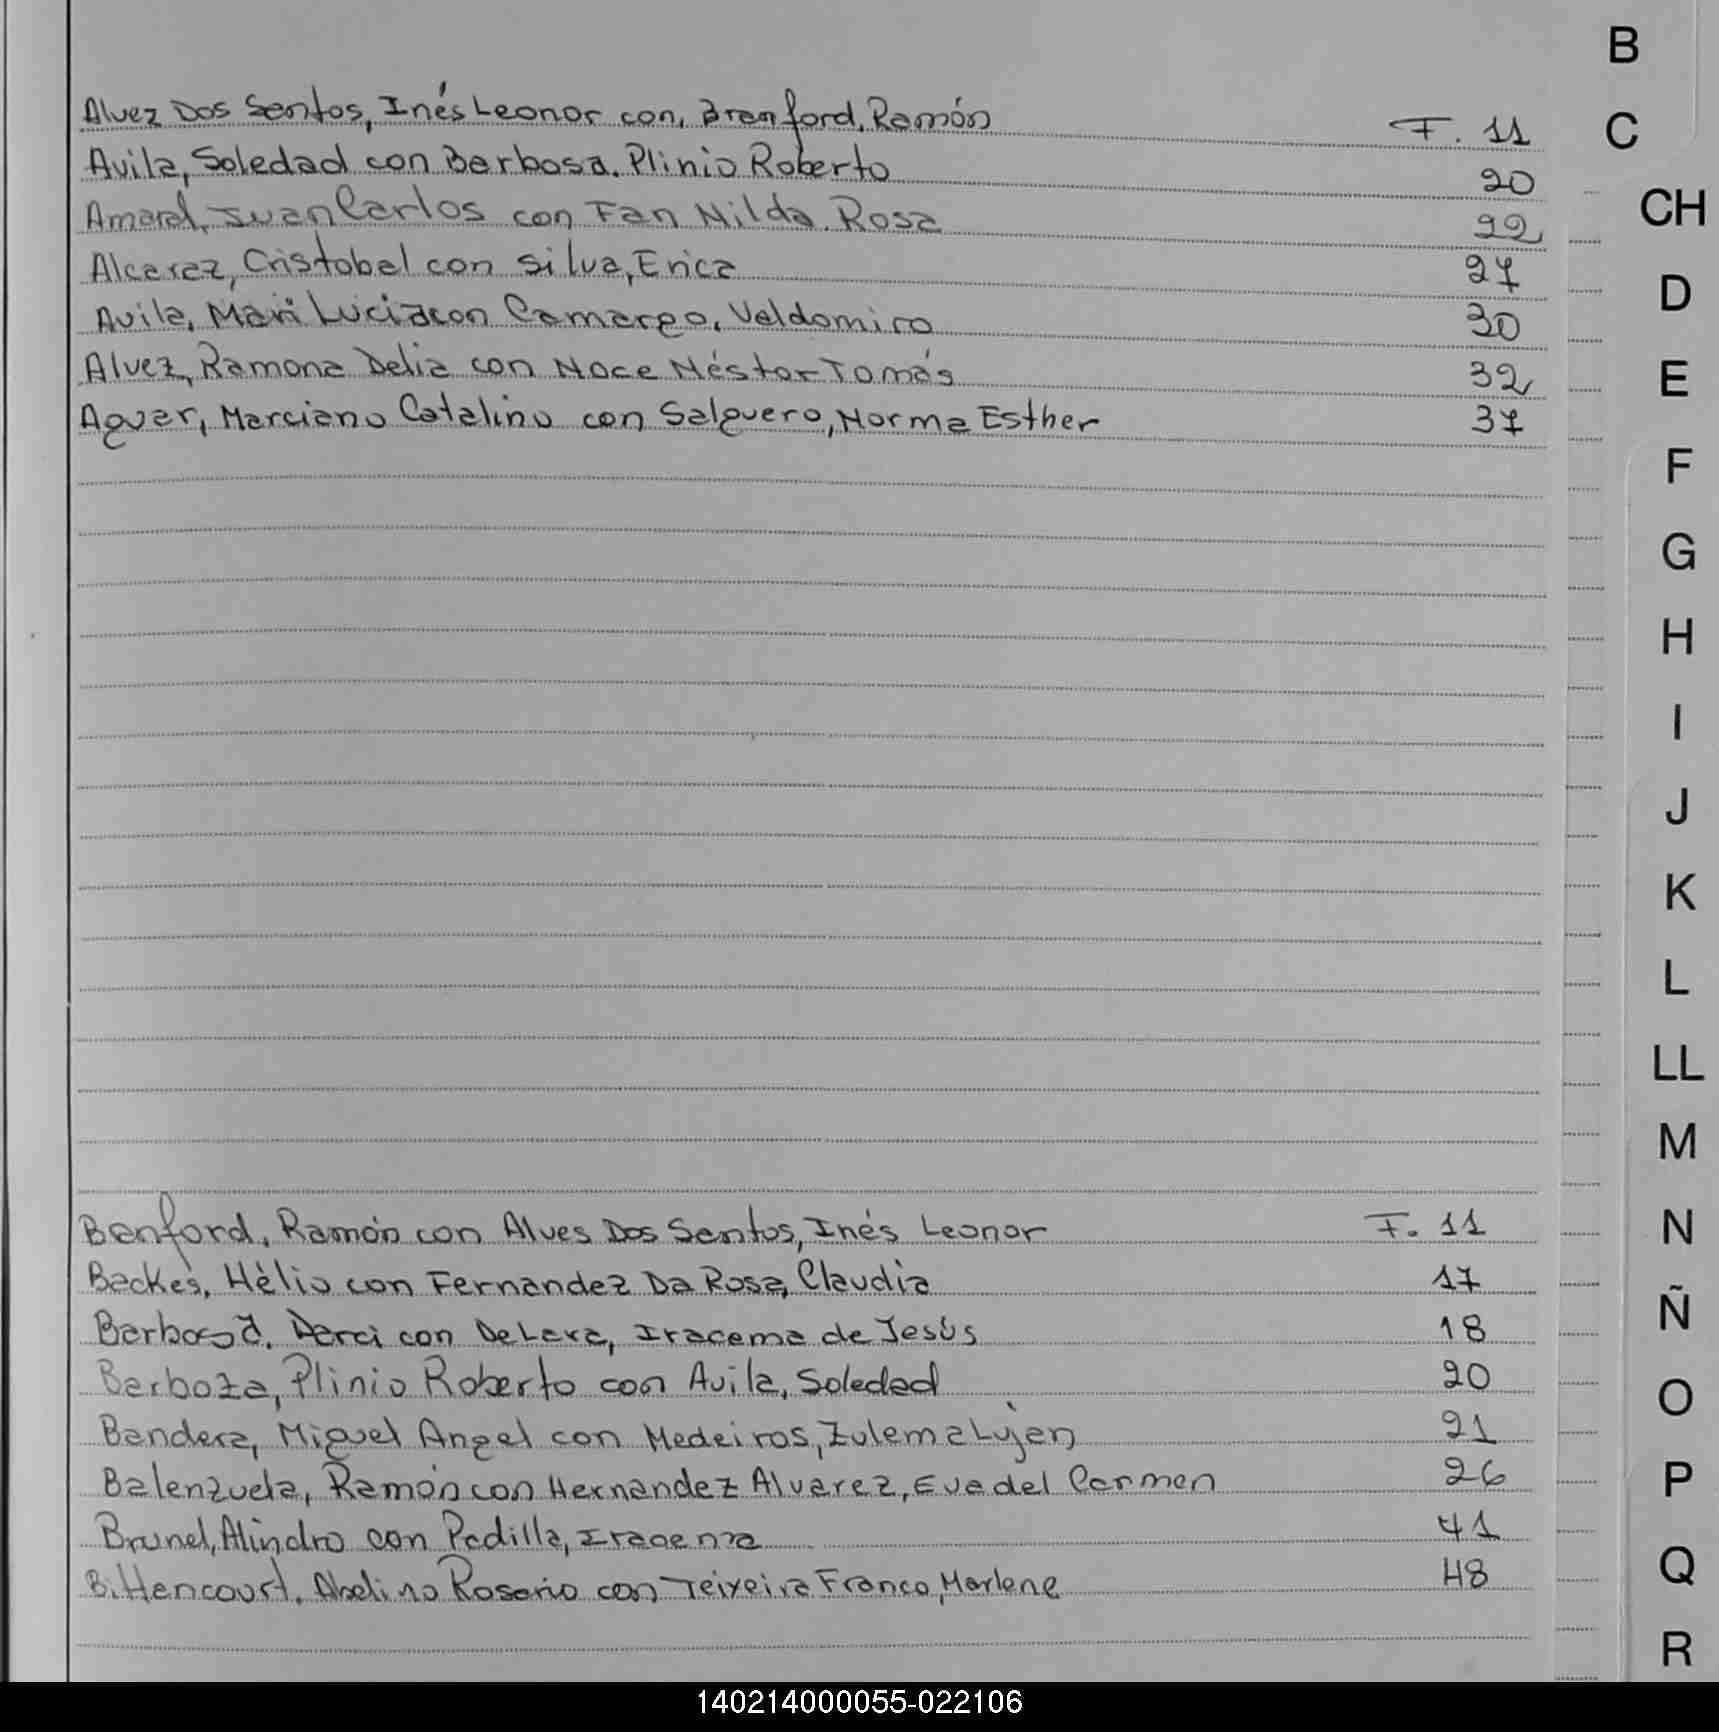 Alvez Dos Santos, Inés Leonor con, Branford, Ramón F. 11
Avila, Soledad con Barbosa. Plinio Roberto 20
Amaral, Juan Carlos con Fan Nilda. Rosa 22
Alcaraz, Cristobal con Silva, Erica 27
Avila, Mari Lucia con Camargo, Valdomiro 30
Alvez, Ramona Delia con Noce Néstor Tomás 32
Aguar, Marciano Catalino con Salguero, Norma Esther 37
Banford, Ramón con Alves Dos Santos, Inés Leonor F. 11
Backes, Hélio con Fernandez Da Rosa, Claudia 17
Barbosa, Darci con De Lara, Iracema de Jesús 18
Barboza, Plinio Roberto con Avila, Soledad 20
Bandera, Miguel Angel con Medeiros, Zulema Lujan 21
Balenzuela, Ramón con Hernandez Alvarez, Eva del Carmen 26
Brunel, Alindro con Padilla, 41
Bittencourt, Abelino Rosario con Teixeira Franco, Marlene 48
B
C
CH
D
E
F
G
H
I
J
K
L
LL
M
N
Ñ
O
P
Q
R
140214000055-022106